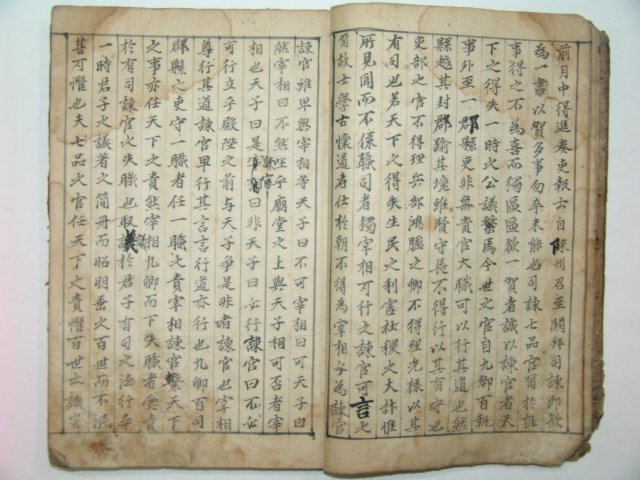 前月中得進奏吏報云自陳州召至闕拜司諫即欲
為一書以賀多事匆卒未能也司諫七品官爾於執
事得之不為喜而獨區區欲一賀者誠以諫官者天
下之得失一時之公議繫焉今世之官自九卿百執
事外至一郡縣吏非無貴官大職可以行其道也然
縣越其封郡踰其境雖賢守長不得行以其有守也
吏部之官不得理兵部鴻臚之卿不得理光祿以其
有司也若天下之得失生民之利害社稷之大計惟
所見聞而不係職司者獨宰相可行之諫官可言之
爾故士學古懷道者仕於朝不得為宰相必為諫官
諫官雖卑與宰相等天子曰不可宰相曰可天子曰
然宰相曰不然坐乎廟堂之上與天子相可否者宰
相也天子曰是諫官曰非天子曰必行諫官曰不必
可行立乎殿陛之前与天子爭是非者諫官也宰相
尊行其道諫官卑行其言言行道亦行也九卿百司
郡縣之吏守一職者任一職之責宰相諫官繫天下
之事亦任天下之責然宰相九卿而下失職者受責
於有司諫官之失職也取譏於君子有司之法行乎
一時君子之議著之簡冊而昭明垂之百世而不泯
甚可懼也夫七品之官任天下之責懼百世之譏豈